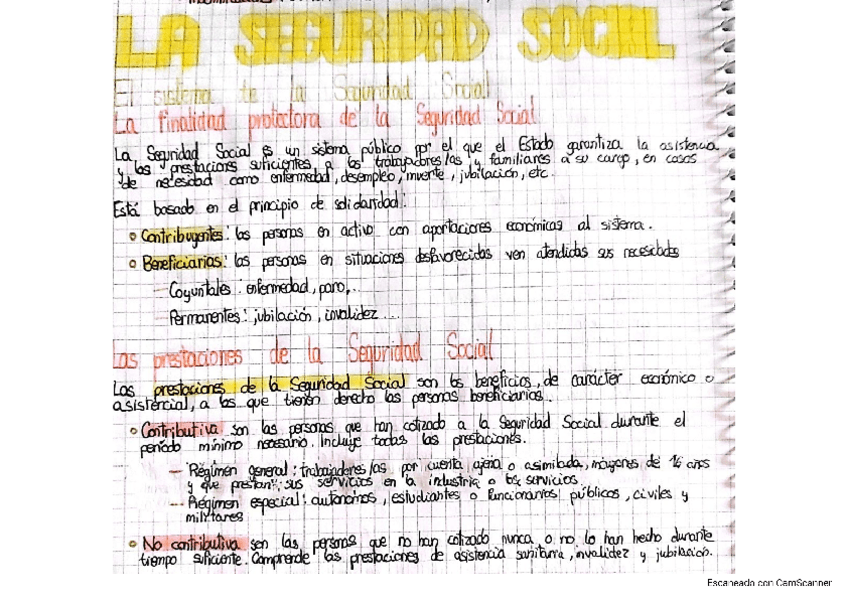 LA SEGURIDAD SOCIAL
El sistema te la Seguridad Social
La finalidad protectora de la Seguridad Social
La Seguridad Social es un sistema público por el que el Estado garantiza la asistencia
y las prestaciones suficientes a los trabajadores/as y familiares a su cargo, en casos
de necesidad como enfermedad, desempleo, muerte, jubilación, etc.
Está basado en el principio de solidaridad:
Contribuyentes: las personas en activo con aportaciones económicas al sistema.
Beneficiarias: las personas en situaciones desfavorecidas ven atendidas sus necesidades
Coyuntales. enfermedad, paro,..
Permanentes: jubilación, invalidez...
Las prestaciones de la Seguridad Social
Las prestaciones de la Seguridad Social son los beneficios, de carácter económico o
asistencial, a los que tienen derecho las personas beneficiarias.
Contributiva son las personas que han cotizado a la Seguridad Social durante el
período mínimo necesario. Incluye todas las prestaciones.
- Régimen general: trabajadores/as por cuenta ajena o asimilada, mayores de 16 años
y que prestan sus servicios en la industria o los servicios.
- Régimen especial: autónomos, estudiantes o funcionarios públicos, civiles y
militares
No contributiva son las personas que no han cotizado nunca o no lo han hecho durante
tiempo suficiente. Comprende las prestaciones de asistencia sanitaria, invalidez y jubilación.
Escaneado con CamScanner